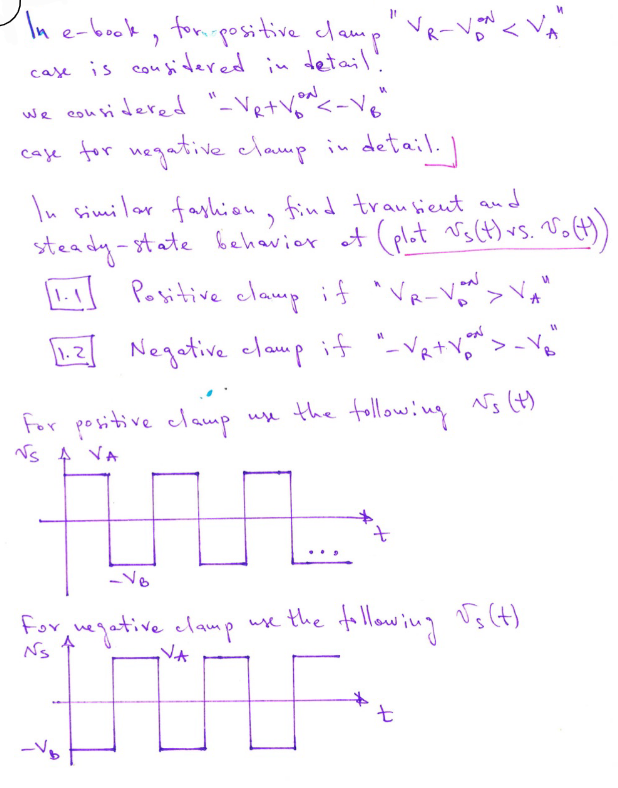 In e-book, for positive clamp "V_R-V_D^ON < V_A"
case is considered in detail.
we considered "-V_R+V_D^ON < -V_B"
case for negative clamp in detail.]
In similar fashion, find transient and
steady-state behavior of (plot v_s(t) vs. v_o(t))
1.1 Positive clamp if "V_R-V_D^ON > V_A"
1.2 Negative clamp if "-V_R+V_D^ON > -V_B"
For positive clamp use the following v_s(t)
v_s V_A
t
...
-V_B
For negative clamp use the following v_s(t)
v_s V_A
t
-V_B